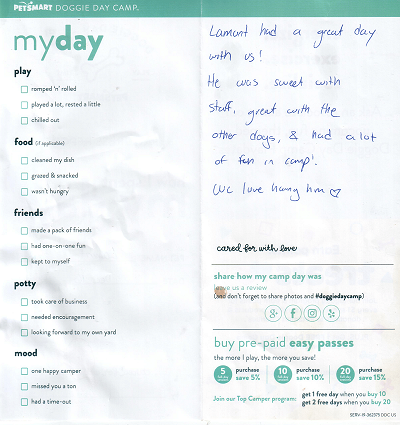 PETSMART DOGGIE DAY CAMP.
myday
play
romped 'n' rolled
played a lot, rested a little
chilled out
food (if applicable)
cleaned my dish
grazed & snacked
wasn't hungry
friends
made a pack of friends
had one-on-one fun
kept to myself
potty
took care of business
needed encouragement
looking forward to my own yard
mood
one happy camper
missed you a ton
had a time-out
Lamont had a great day
with us!
He was sweet with
staff, great with the
other dogs, & had a lot
of fun in camp!
We love having him ♡
cared for with love
share how my camp day was
leave us a review
(and don't forget to share photos and #doggiedaycamp)
buy pre-paid easy passes
the more I play, the more you save!
5 full day passes purchase save 5%
10 full day passes purchase save 10%
20 full day passes purchase save 15%
Join our Top Camper program: get 1 free day when you buy 10
get 2 free days when you buy 20
SERV-19-362575 DDC US